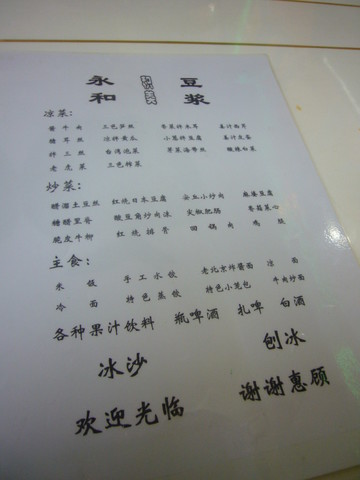 永和 豆浆
凉菜：
酱牛肉 三色笋丝 香菜拌木耳 姜汁西芹
猪耳丝 凉拌黄瓜 小葱拌豆腐 姜汁
拌三丝 台湾泡菜 芽菜海带丝 酸辣白菜
老虎菜 三色拌菜
炒菜：
醋溜土豆丝 红烧日本豆腐 小炒肉 麻婆豆腐
糖醋里脊 酸豆角炒肉沫 尖椒肥肠 香菇菜心
脆皮牛柳 红烧排骨 回锅肉 鸡腿
主食：
米饭 手工水饺 老北京炸酱面 凉面
冷面 特色蒸饺 特色小笼包 牛肉炒面
各种果汁饮料 瓶啤酒 扎啤 白酒
冰沙 刨冰
欢迎光临 谢谢惠顾